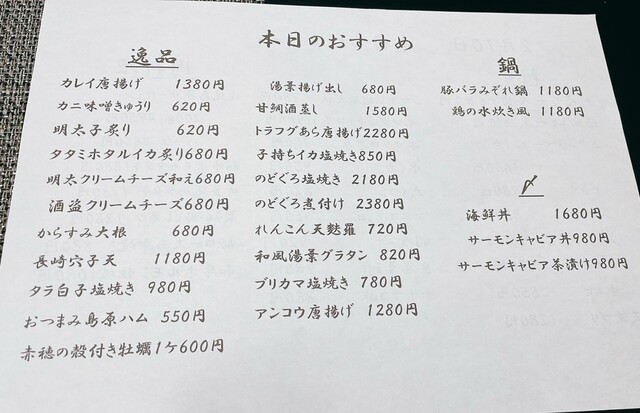 本日のおすすめ
逸品
カレイ唐揚げ 1380円
カニ味噌きゅうり 620円
明太子炙り 620円
タタミホタルイカ炙り680円
明太クリームチーズ和え680円
酒盗クリームチーズ680円
からすみ大根 680円
長崎穴子天 1180円
タラ白子塩焼き 980円
おつまみ島原ハム 550円
赤穂の殻付き牡蠣1ケ600円
湯葉揚げ出し 680円
甘鯛酒蒸し 1580円
トラフグあら唐揚げ2280円
子持ちイカ塩焼き850円
のどぐろ塩焼き 2180円
のどぐろ煮付け 2380円
れんこん天麩羅 720円
和風湯葉グラタン 820円
ブリカマ塩焼き 780円
アンコウ唐揚げ 1280円
鍋
豚バラみぞれ鍋 1180円
鶏の水炊き風 1180円
〆
海鮮丼 1680円
サーモンキャビア丼980円
サーモンキャビア茶漬け980円